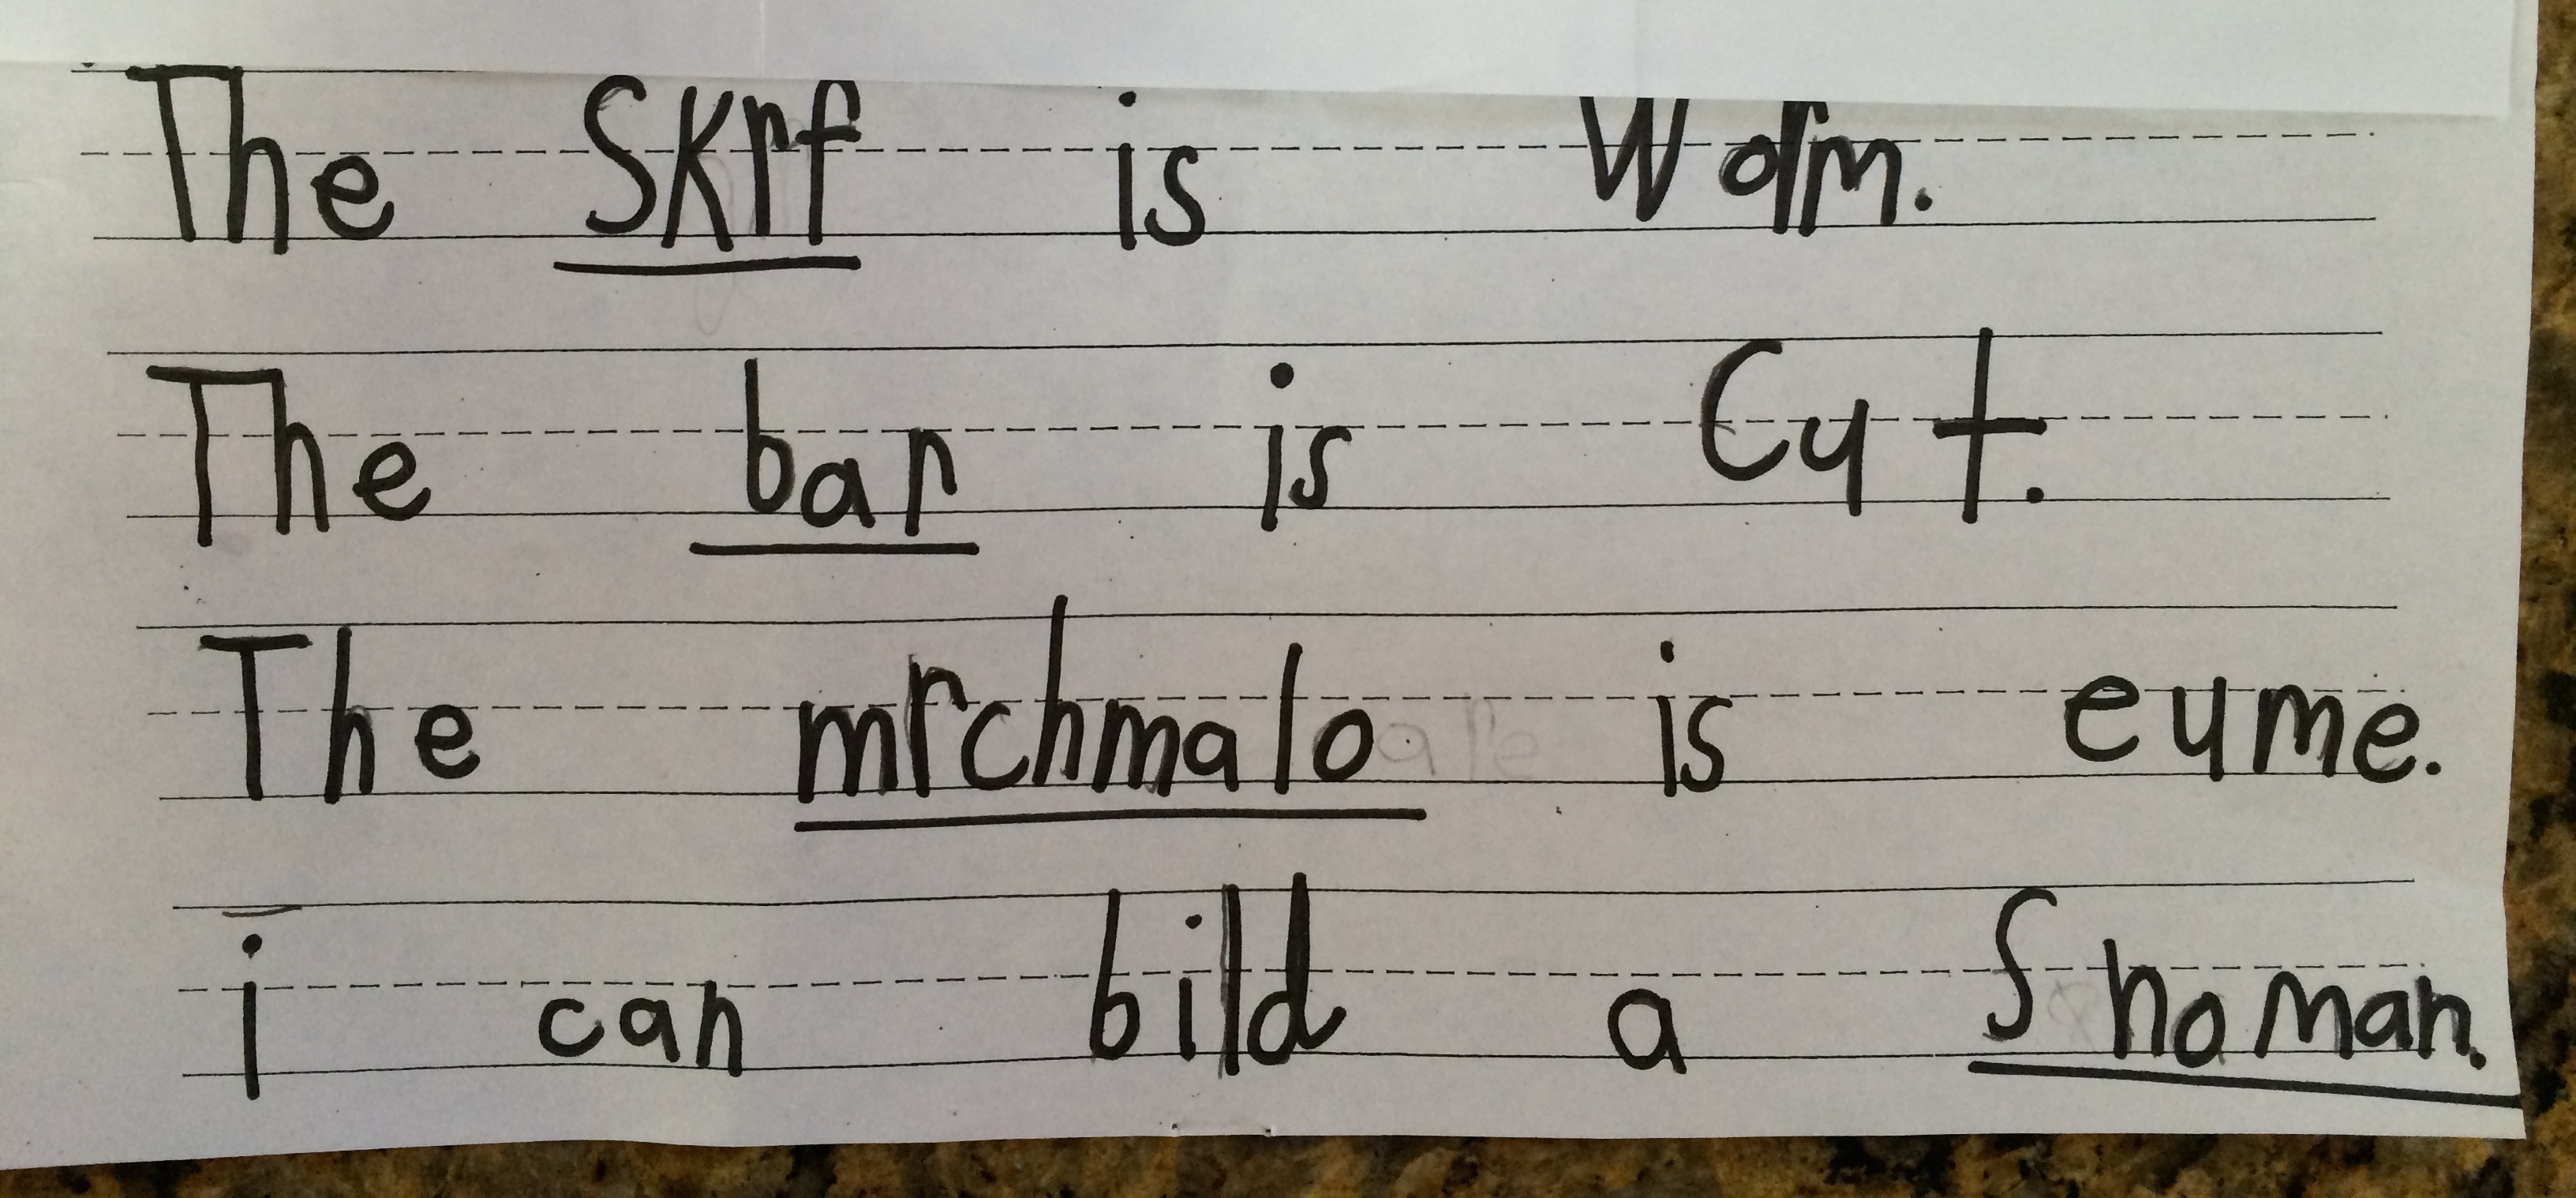 The Skrf is Warm.
The bar is Cyt.
The mrchmalo is eyme.
i can bild a Snoman.